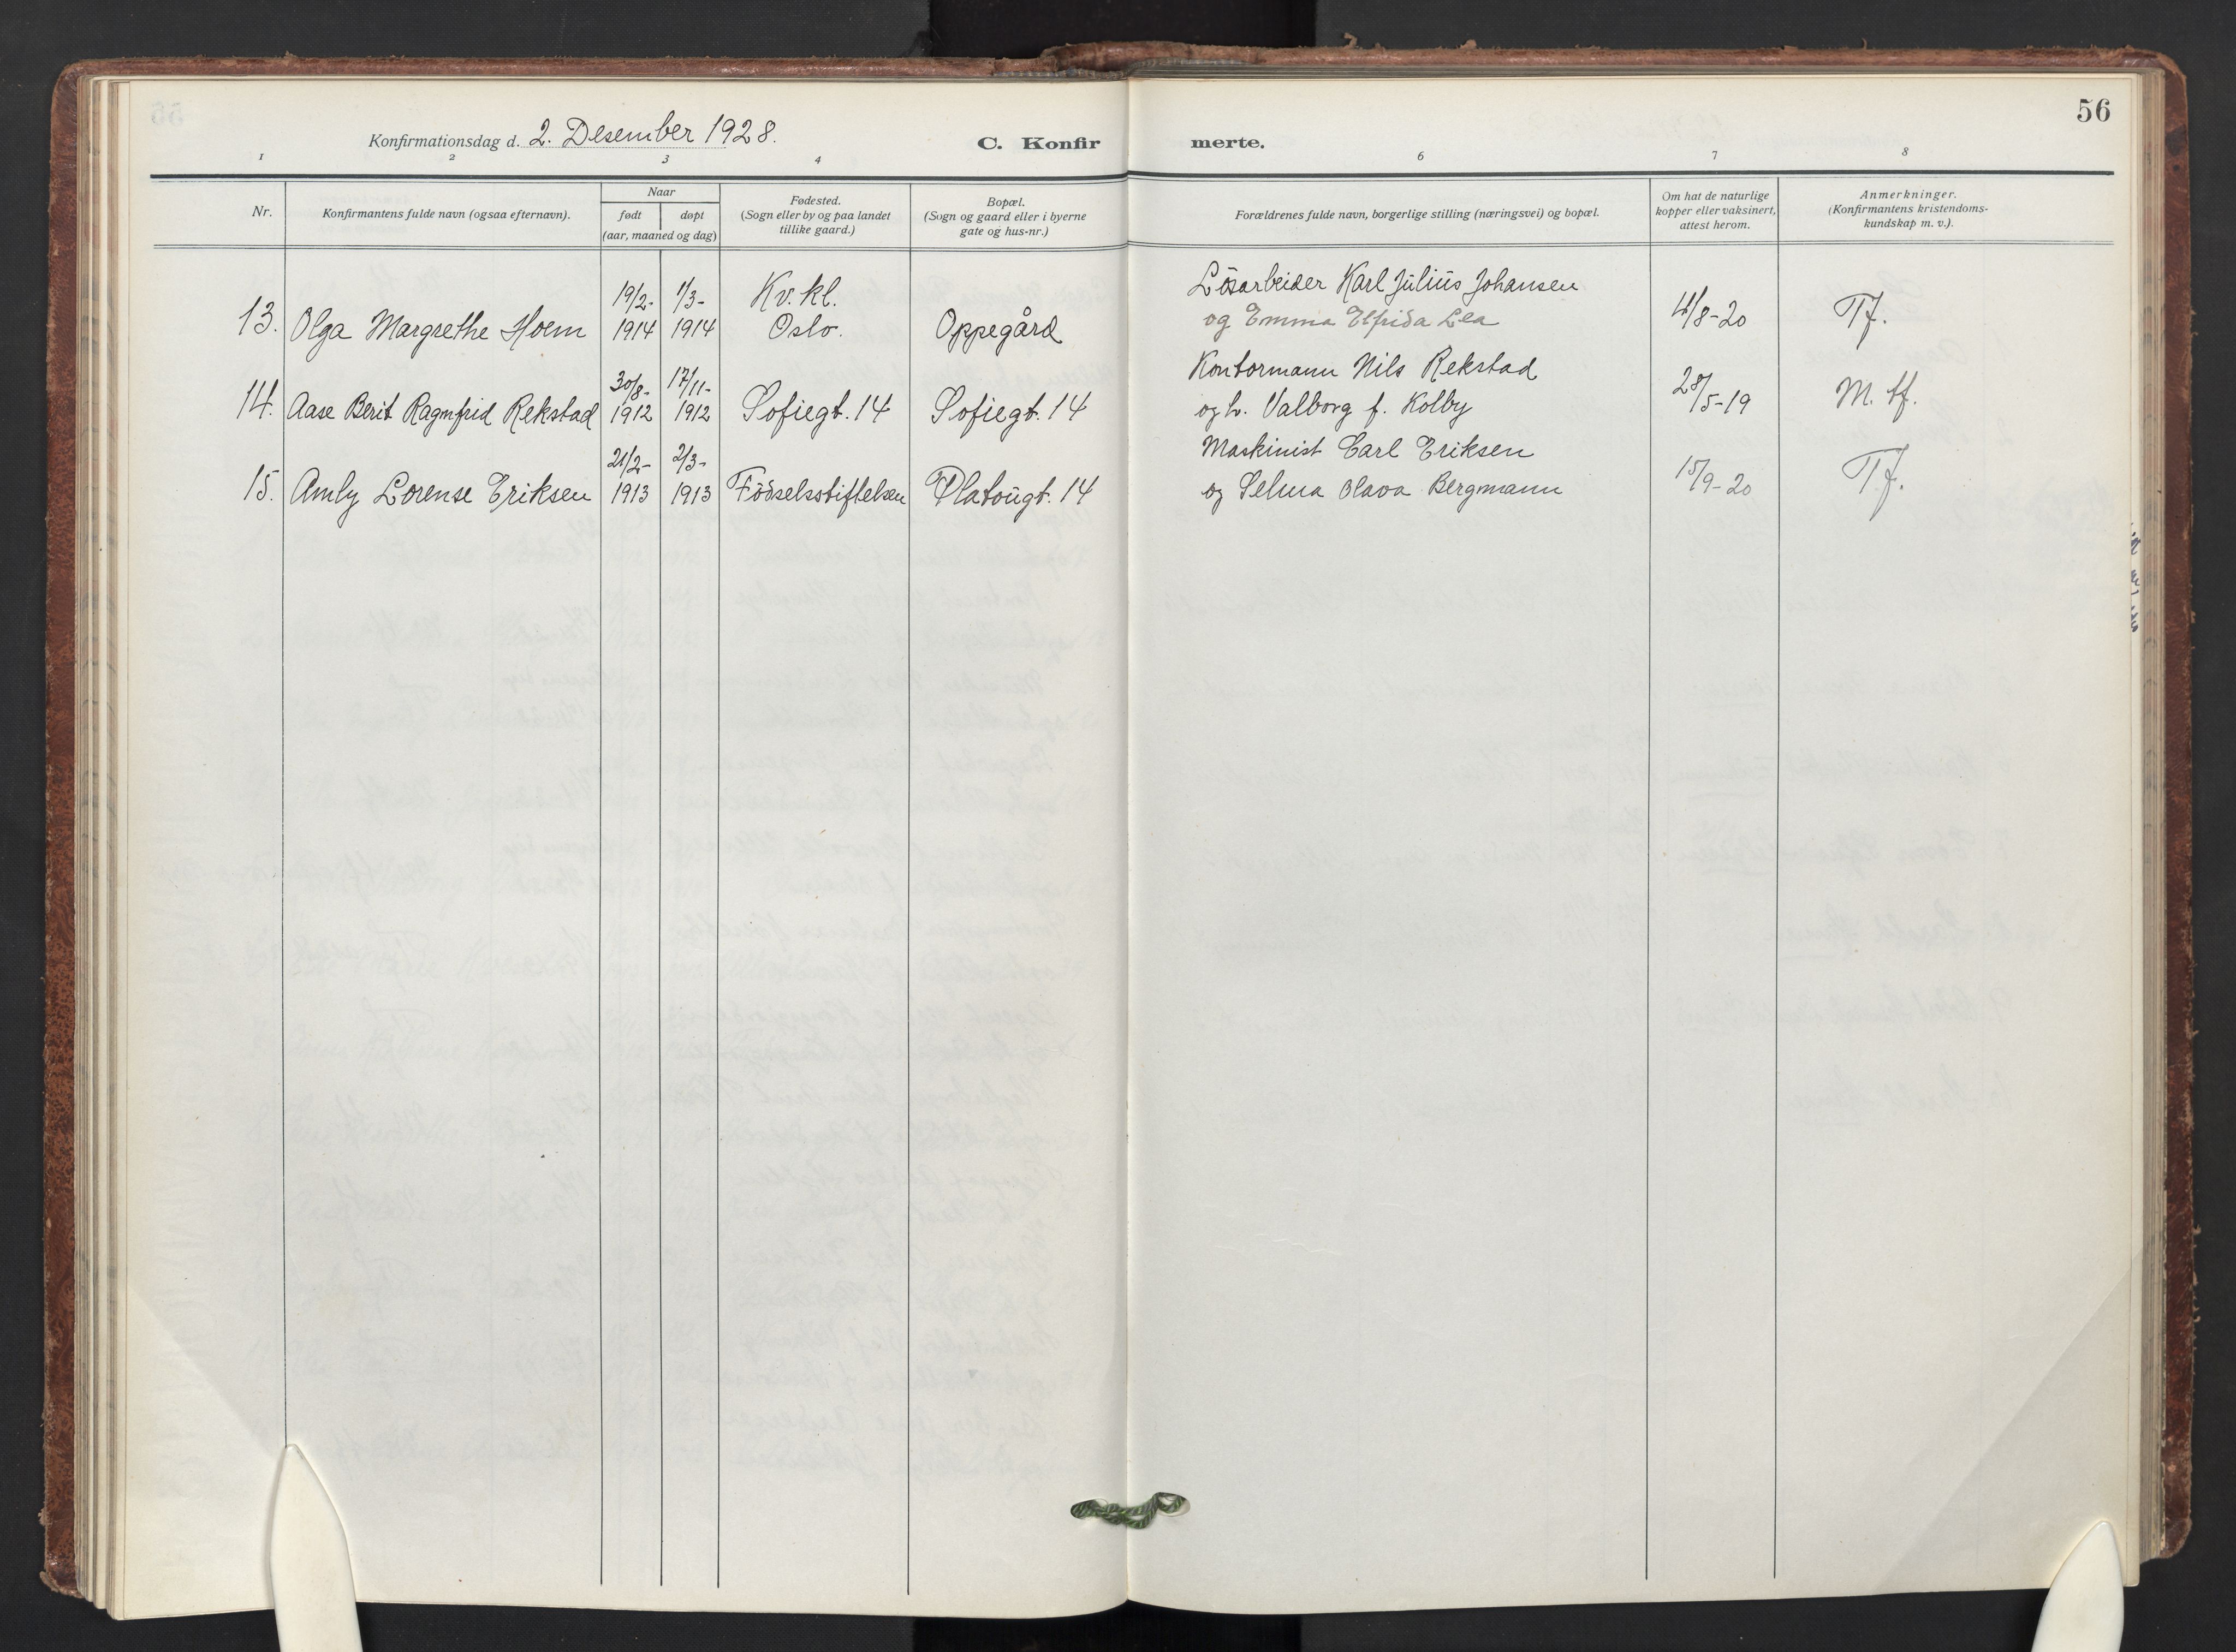 56
Konfirmationsdag d. 2. Desember 1928.
C. Konfir
merte.
1 2 3 4 6 7 8
Nr.
Konfirmantens fulde navn (ogsaa efternavn).
Naar
født døpt
(aar, maaned og dag)
Fødested.
(Sogn eller by og paa landet
tillike gaard.)
Bopæl.
(Sogn og gaard eller i byerne
gate og hus-nr.)
Forældrenes fulde navn, borgerlige stilling (næringsvei) og bopæl.
Om hat de naturlige
kopper eller vaksinert,
attest herom.
Anmerkninger.
(Konfirmantens kristendoms-
kundskap m. v.).
19/2- 1/3- Kv. kl. Lösarbeider Karl Julius Johansen
13. Olga Margrethe Hoem 1914 1914 Oslo. Oppegård og Emma Elfrida Lea /8-20 Tf.
30/8- 17/11- Kontormann Nils Rekstad
14. Aase Berit Ragnfrid Rekstad 1912 1912 Sofiegt. 14 Sofiegt. 14 og h. Valborg f. Kolby 28/5-19 M. tf.
21/2- 2/3- Maskinist Carl Eriksen
15. Amly Lorense Eriksen 1913 1913 Födselsstiftelsen Platougt. 14 og Selma Olava Bergmann 15/9-20 Tf.